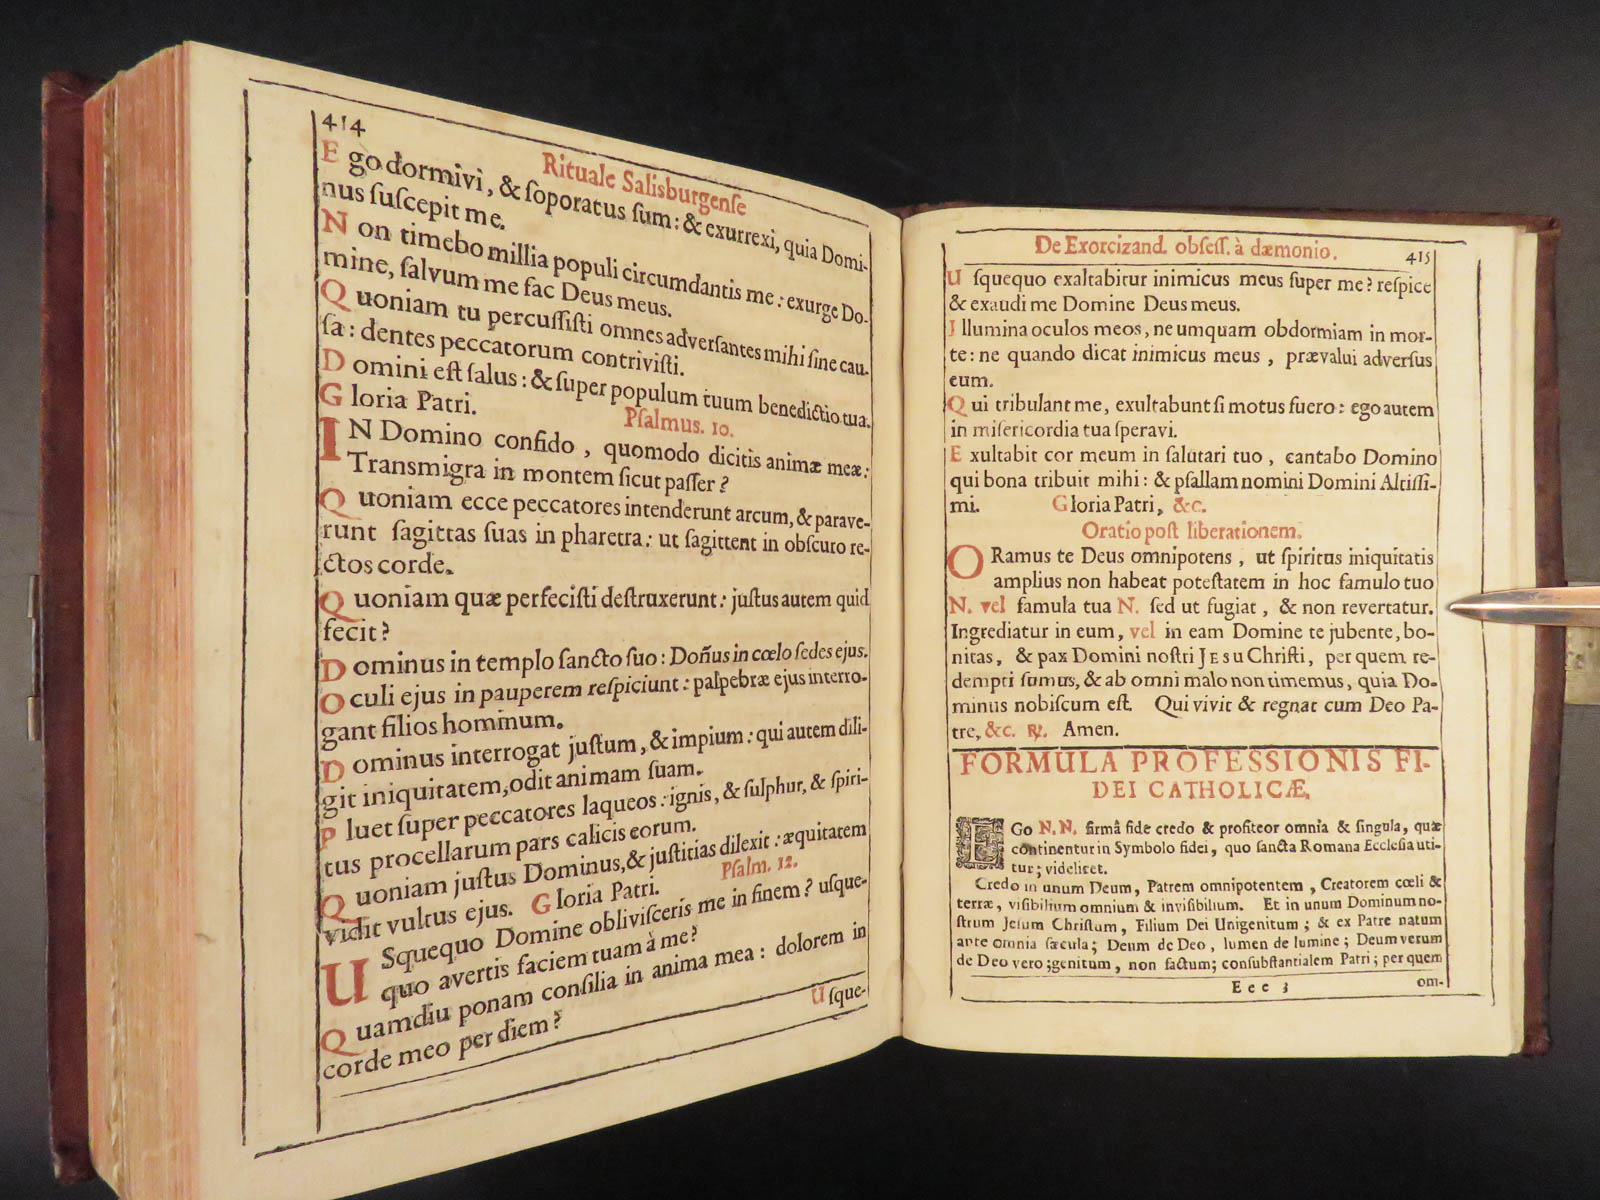 414
Rituale Salisburgense
Ego dormivi, & ſoporatus ſum: & exurrexi, quia Domi-
nus ſuſcepit me.
Non timebo millia populi circumdantis me: exurge Do-
mine, ſalvum me fac Deus meus.
Quoniam tu percuſſiſti omnes adverſantes mihi ſine cau-
ſa: dentes peccatorum contriviſti.
Domini eſt ſalus: & ſuper populum tuum benedictio tua.
Gloria Patri.
Pſalmus. 10.
IN Domino confido, quomodo dicitis animæ meæ:
Transmigra in montem ſicut paſſer?
Quoniam ecce peccatores intenderunt arcum, & parave-
runt ſagittas ſuas in pharetra: ut ſagittent in obſcuro re-
ctos corde.
Quoniam quæ perfeciſti deſtruxerunt: juſtus autem quid
fecit?
Dominus in templo ſancto ſuo: Doñus in cœlo ſedes ejus.
Oculi ejus in pauperem reſpiciunt: palpebræ ejus interro-
gant filios hominum.
Dominus interrogat juſtum, & impium: qui autem dili-
git iniquitatem, odit animam ſuam.
Pluet ſuper peccatores laqueos: ignis, & ſulphur, & ſpiri-
tus procellarum pars calicis eorum.
Quoniam juſtus Dominus, & juſtitias dilexit: æquitatem
vidit vultus ejus. Gloria Patri.
Pſalm. 12.
USquequo Domine obliviſceris me in finem? uſque-
quo avertis faciem tuam à me?
Quamdiu ponam conſilia in anima mea: dolorem in
corde meo per diem?
Uſque-
De Exorcizand. obſeſſ. à dæmonio.
415
Uſquequo exaltabitur inimicus meus ſuper me? reſpice
& exaudi me Domine Deus meus.
Illumina oculos meos, ne umquam obdormiam in mor-
te: ne quando dicat inimicus meus, prævalui adverſus
eum.
Qui tribulant me, exultabunt ſi motus fuero: ego autem
in miſericordia tua ſperavi.
Exultabit cor meum in ſalutari tuo, cantabo Domino
qui bona tribuit mihi: & pſallam nomini Domini Altiſſi-
mi. Gloria Patri, &c.
Oratio poſt liberationem.
ORamus te Deus omnipotens, ut ſpiritus iniquitatis
amplius non habeat poteſtatem in hoc famulo tuo
N. vel famula tua N. ſed ut fugiat, & non revertatur.
Ingrediatur in eum, vel in eam Domine te jubente, bo-
nitas, & pax Domini noſtri JEſu Chriſti, per quem re-
dempti ſumus, & ab omni malo non timemus, quia Do-
minus nobiſcum eſt. Qui vivit & regnat cum Deo Pa-
tre, &c. ℟. Amen.
FORMULA PROFESSIONIS FI-
DEI CATHOLICÆ.
EGo N. N. firmâ fide credo & profiteor omnia & ſingula, quæ
continentur in Symbolo fidei, quo ſancta Romana Eccleſia uti-
tur; videlicet.
Credo in unum Deum, Patrem omnipotentem, Creatorem cœli &
terræ, viſibilium omnium & inviſibilium. Et in unum Dominum no-
ſtrum Jeſum Chriſtum, Filium Dei Unigenitum; & ex Patre natum
ante omnia ſæcula; Deum de Deo, lumen de lumine; Deum verum
de Deo vero; genitum, non factum; conſubſtantialem Patri; per quem
Eee 3
om-